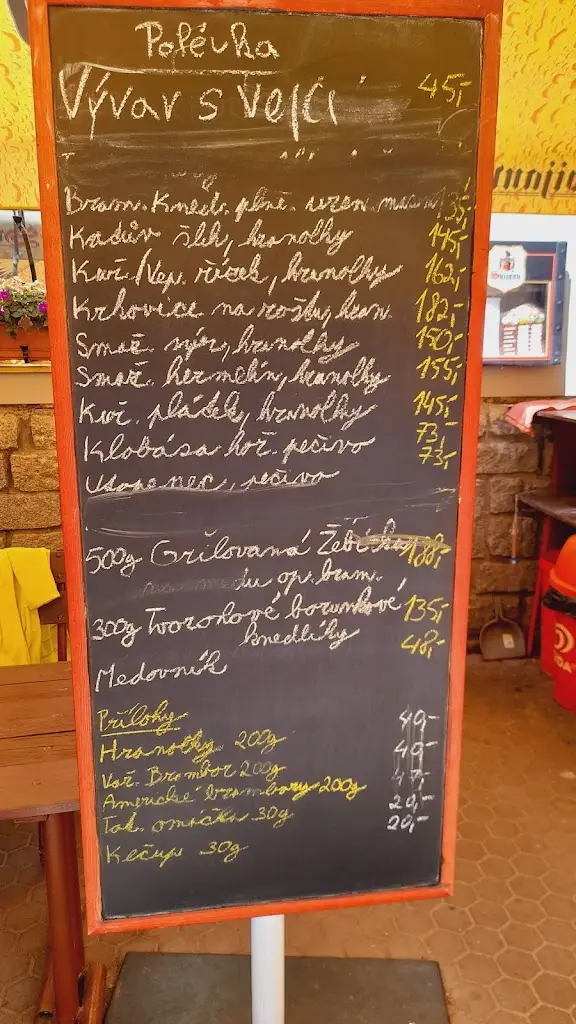 Polévka
Vývar s vejci 45,-
Bram. knedl. plně. uzen. masem 135,-
Kadův flek, hranolky 145,-
Kuř./Vep. řízek, hranolky 162,-
Krkovice na roštu, hran. 182,-
Smaž. sýr, hranolky 150,-
Smaž. hermelín, hranolky 155,-
Kuř. plátek, hranolky 145,-
Klobása hoř. pečivo 73,-
Utopenec, pečivo 73,-
500g Grilovaná Žebírka 188,-
du op. bram.
300g Tvarohové borůvkové 135,-
knedlíky
Medovník 48,-
Přílohy
Hranolky 200g 49,-
Vař. Brambor 200g 49,-
Americké brambory 200g 47,-
Tat. omáčka 30g 20,-
Kečup 30g 20,-
Svijany